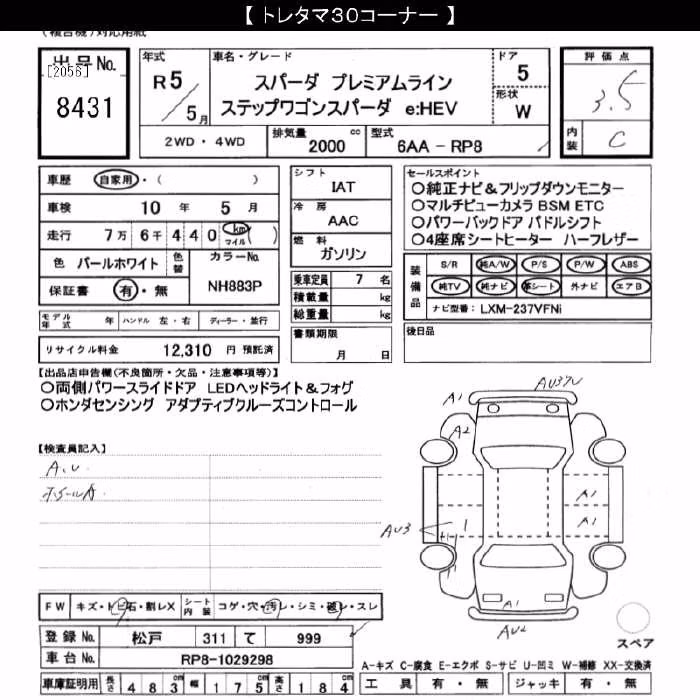 【 トレタマ30コーナー 】
(複合機)対応用紙
出品No.
[2056]
8431
年式
R5/5月
車名・グレード
スパーダ プレミアムライン
ステップワゴンスパーダ e:HEV
ドア
5
形状
W
評価点
3.5
内装
C
2WD・4WD
排気量 2000 cc
型式 6AA - RP8
車歴 自家用・( )
車検 10年 5月
走行 7万 6千 440 (km マイル)
色 パールホワイト 色替
カラーNo. NH883P
保証書 有・無
シフト
IAT
冷房
AAC
燃料
ガソリン
乗車定員 7 名
積載量 kg
総重量 kg
書類期限
月 日
セールスポイント
○純正ナビ&フリップダウンモニター
○マルチビューカメラ BSM ETC
○パワーバックドア パドルシフト
○4座席シートヒーター ハーフレザー
装備品
S/R 純A/W P/S P/W ABS
純TV 純ナビ 革シート 外ナビ エアB
ナビ型番: LXM-237VFNi
後日品
モデル年式 年 ハンドル 左・右 ディーラー・並行
リサイクル料金 12,310 円 預託済
【出品店申告欄(不良箇所・欠品・注意事項等)】
○両側パワースライドドア LEDヘッドライト&フォグ
○ホンダセンシング アダプティブクルーズコントロール
【検査員記入】
A.U.
ホイールA
A1
AU3ワ
A2
A1
A1
AU3
1
A1
AU2
スペア
FW キズ・トビ石・割レX
シート内装 コゲ・穴・汚レ・シミ・破レ・スレ
登録No. 松戸 311 て 999
車台No. RP8-1029298
車庫証明用 長さ 483cm 幅 175cm 高さ 184cm
A-キズ C-腐食 E-エクボ S-サビ U-凹ミ W-補修 XX-交換済
工具 有・無 ジャッキ 有・無